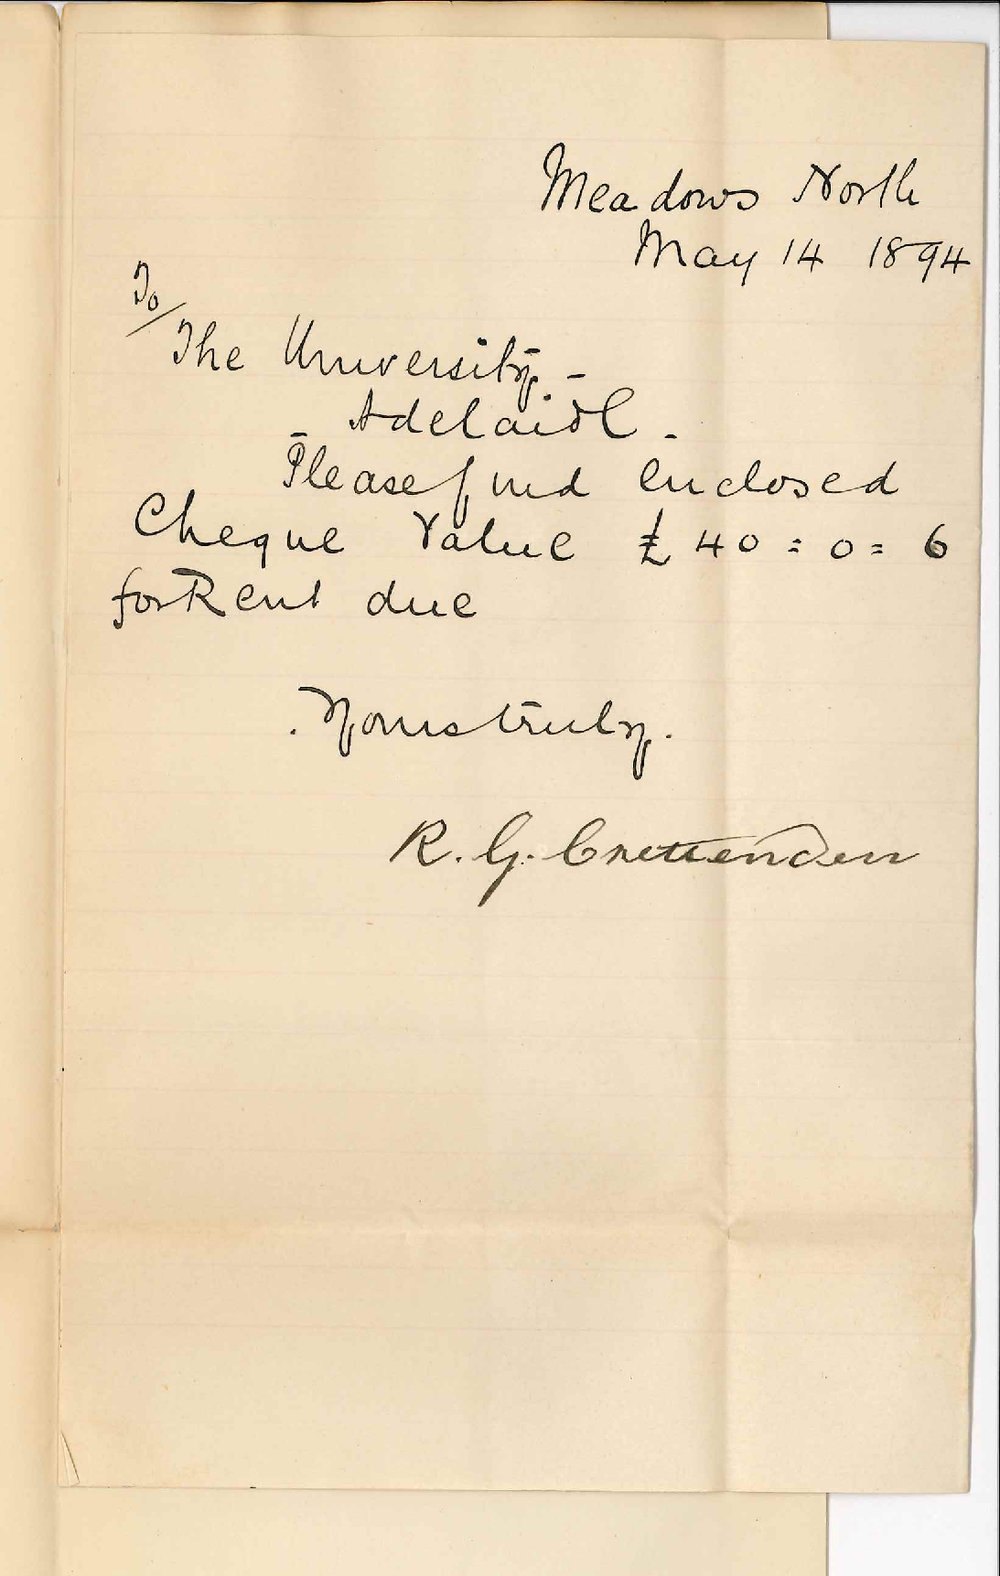 Meadows North
May 14 1894
To/
The University -
- Adelaide -
Please find enclosed
Cheque Value £ 40 = 0 = 6
for Rent due
. Yours truly.
R. G. Crittenden